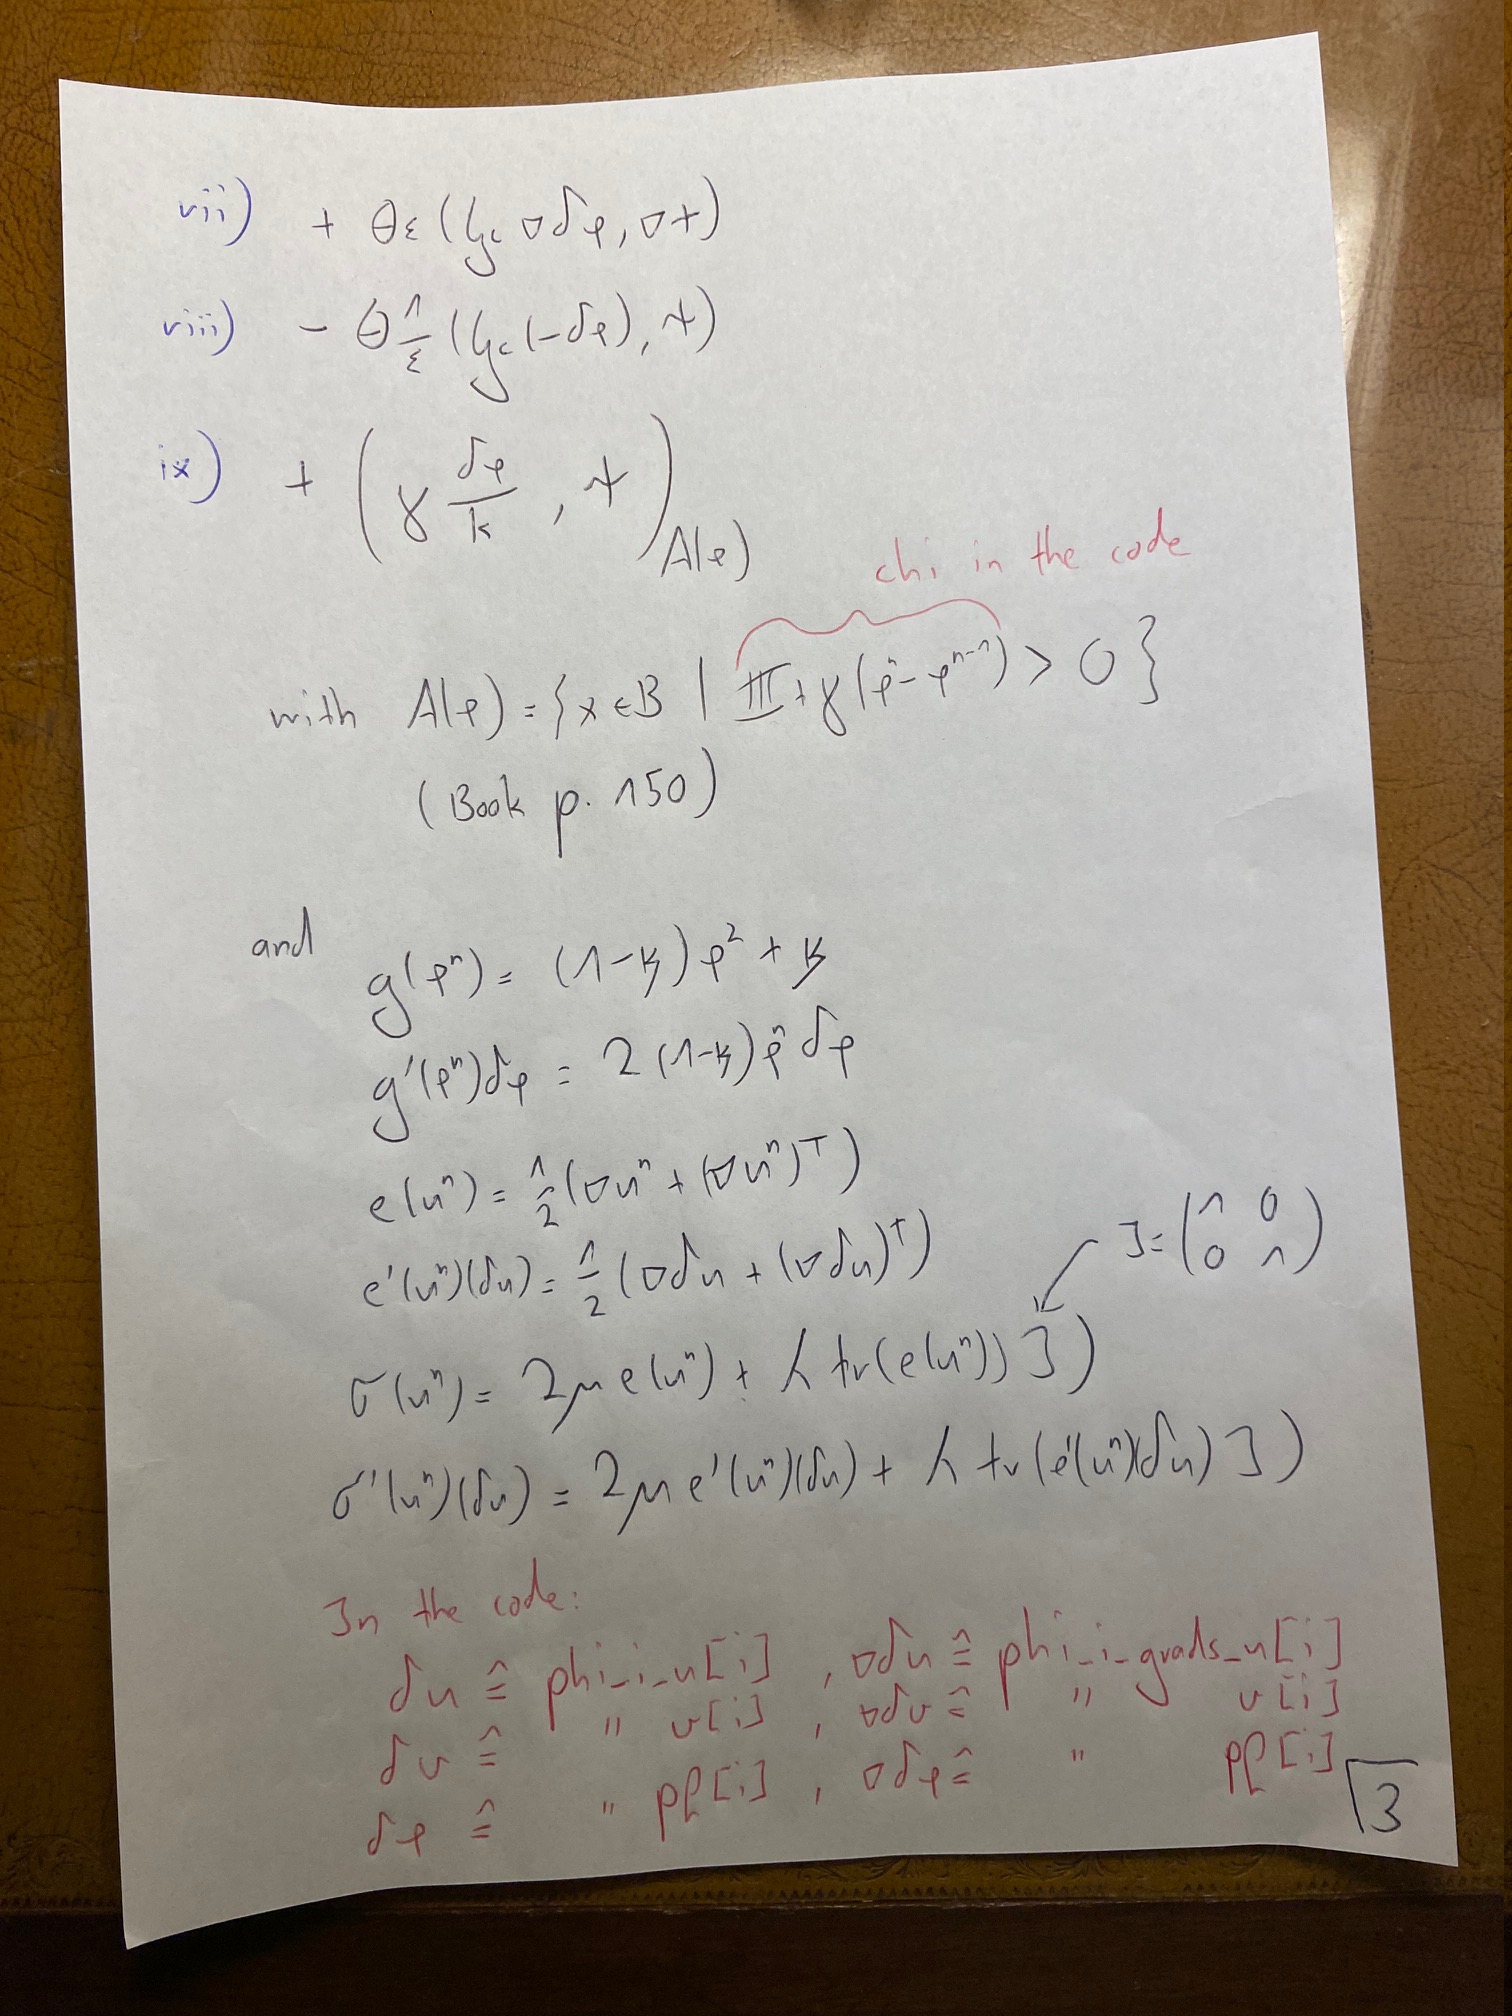 vii) + θε (G_c ∇δφ, ∇ψ)
viii) − θ 1/ε (G_c (−δφ), ψ)
ix) + (γ δφ/k , ψ)_A(φ)
chi in the code
with A(φ) = {x ∈ B | Ξ + γ(φⁿ − φⁿ⁻¹) > 0}
(Book p. 150)
and
g(φⁿ) = (1−κ) φ² + κ
g'(φⁿ)δφ = 2 (1−κ) φⁿ δφ
e(uⁿ) = 1/2 (∇uⁿ + (∇uⁿ)ᵀ)
e'(uⁿ)(δu) = 1/2 (∇δu + (∇δu)ᵀ)
I = (1 0
0 1)
σ(uⁿ) = 2μ e(uⁿ) + λ tr(e(uⁿ)) I)
σ'(uⁿ)(δu) = 2μ e'(uⁿ)(δu) + λ tr(e'(uⁿ)(δu) I)
In the code:
δu ≙ phi_i_u[i] , ∇δu ≙ phi_i_grads_u[i]
δv ≙ " v[i] , ∇δv ≙ " v[i]
δφ ≙ " pf[i] , ∇δφ ≙ " pf[i]
3